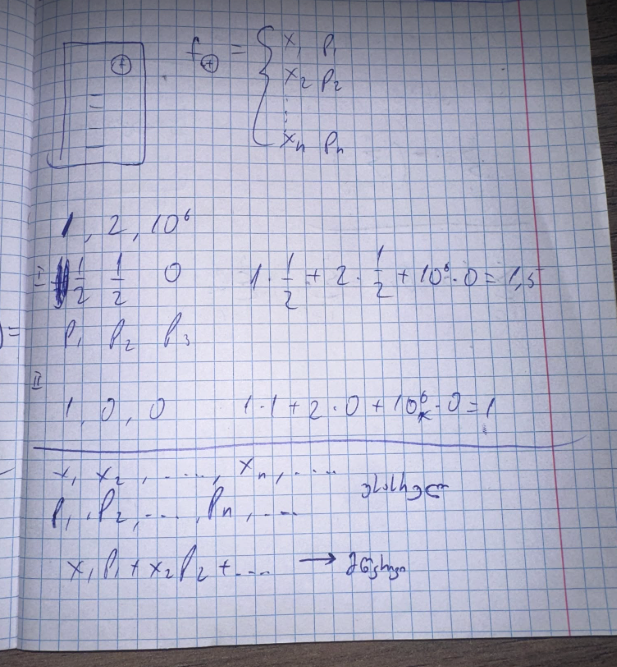 f⊕ = { x₁ p₁
x₂ p₂
⋮
xₙ pₙ
1, 2, 10⁶
I 1/2 1/2 0 1·1/2 + 2·1/2 + 10⁶·0 = 1,5
p₁ p₂ p₃
II
1, 0, 0 1·1 + 2·0 + 10⁶·0 = 1
x₁ x₂, ....., xₙ, ....
p₁, p₂, ...., pₙ, ....
x₁p₁ + x₂p₂ + .... →